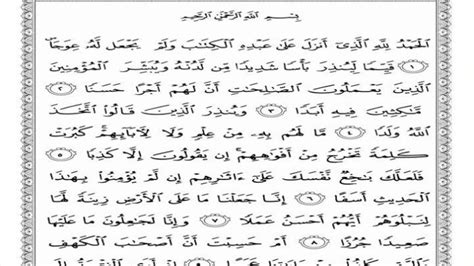 بِسْمِ اللَّهِ الرَّحْمَٰنِ الرَّحِيمِ
الْحَمْدُ لِلَّهِ الَّذِي أَنزَلَ عَلَىٰ عَبْدِهِ الْكِتَابَ وَلَمْ يَجْعَل لَّهُ عِوَجًا ۜ
١ قَيِّمًا لِّيُنذِرَ بَأْسًا شَدِيدًا مِّن لَّدُنْهُ وَيُبَشِّرَ الْمُؤْمِنِينَ
الَّذِينَ يَعْمَلُونَ الصَّالِحَاتِ أَنَّ لَهُمْ أَجْرًا حَسَنًا ٢
مَّاكِثِينَ فِيهِ أَبَدًا ٣ وَيُنذِرَ الَّذِينَ قَالُوا اتَّخَذَ
اللَّهُ وَلَدًا ٤ مَّا لَهُم بِهِ مِنْ عِلْمٍ وَلَا لِآبَائِهِمْ كَبُرَتْ
كَلِمَةً تَخْرُجُ مِنْ أَفْوَاهِهِمْ إِن يَقُولُونَ إِلَّا كَذِبًا ٥
فَلَعَلَّكَ بَاخِعٌ نَّفْسَكَ عَلَىٰ آثَارِهِمْ إِن لَّمْ يُؤْمِنُوا بِهَٰذَا
الْحَدِيثِ أَسَفًا ٦ إِنَّا جَعَلْنَا مَا عَلَى الْأَرْضِ زِينَةً لَّهَا
لِنَبْلُوَهُمْ أَيُّهُمْ أَحْسَنُ عَمَلًا ٧ وَإِنَّا لَجَاعِلُونَ مَا عَلَيْهَا
صَعِيدًا جُرُزًا ٨ أَمْ حَسِبْتَ أَنَّ أَصْحَابَ الْكَهْفِ